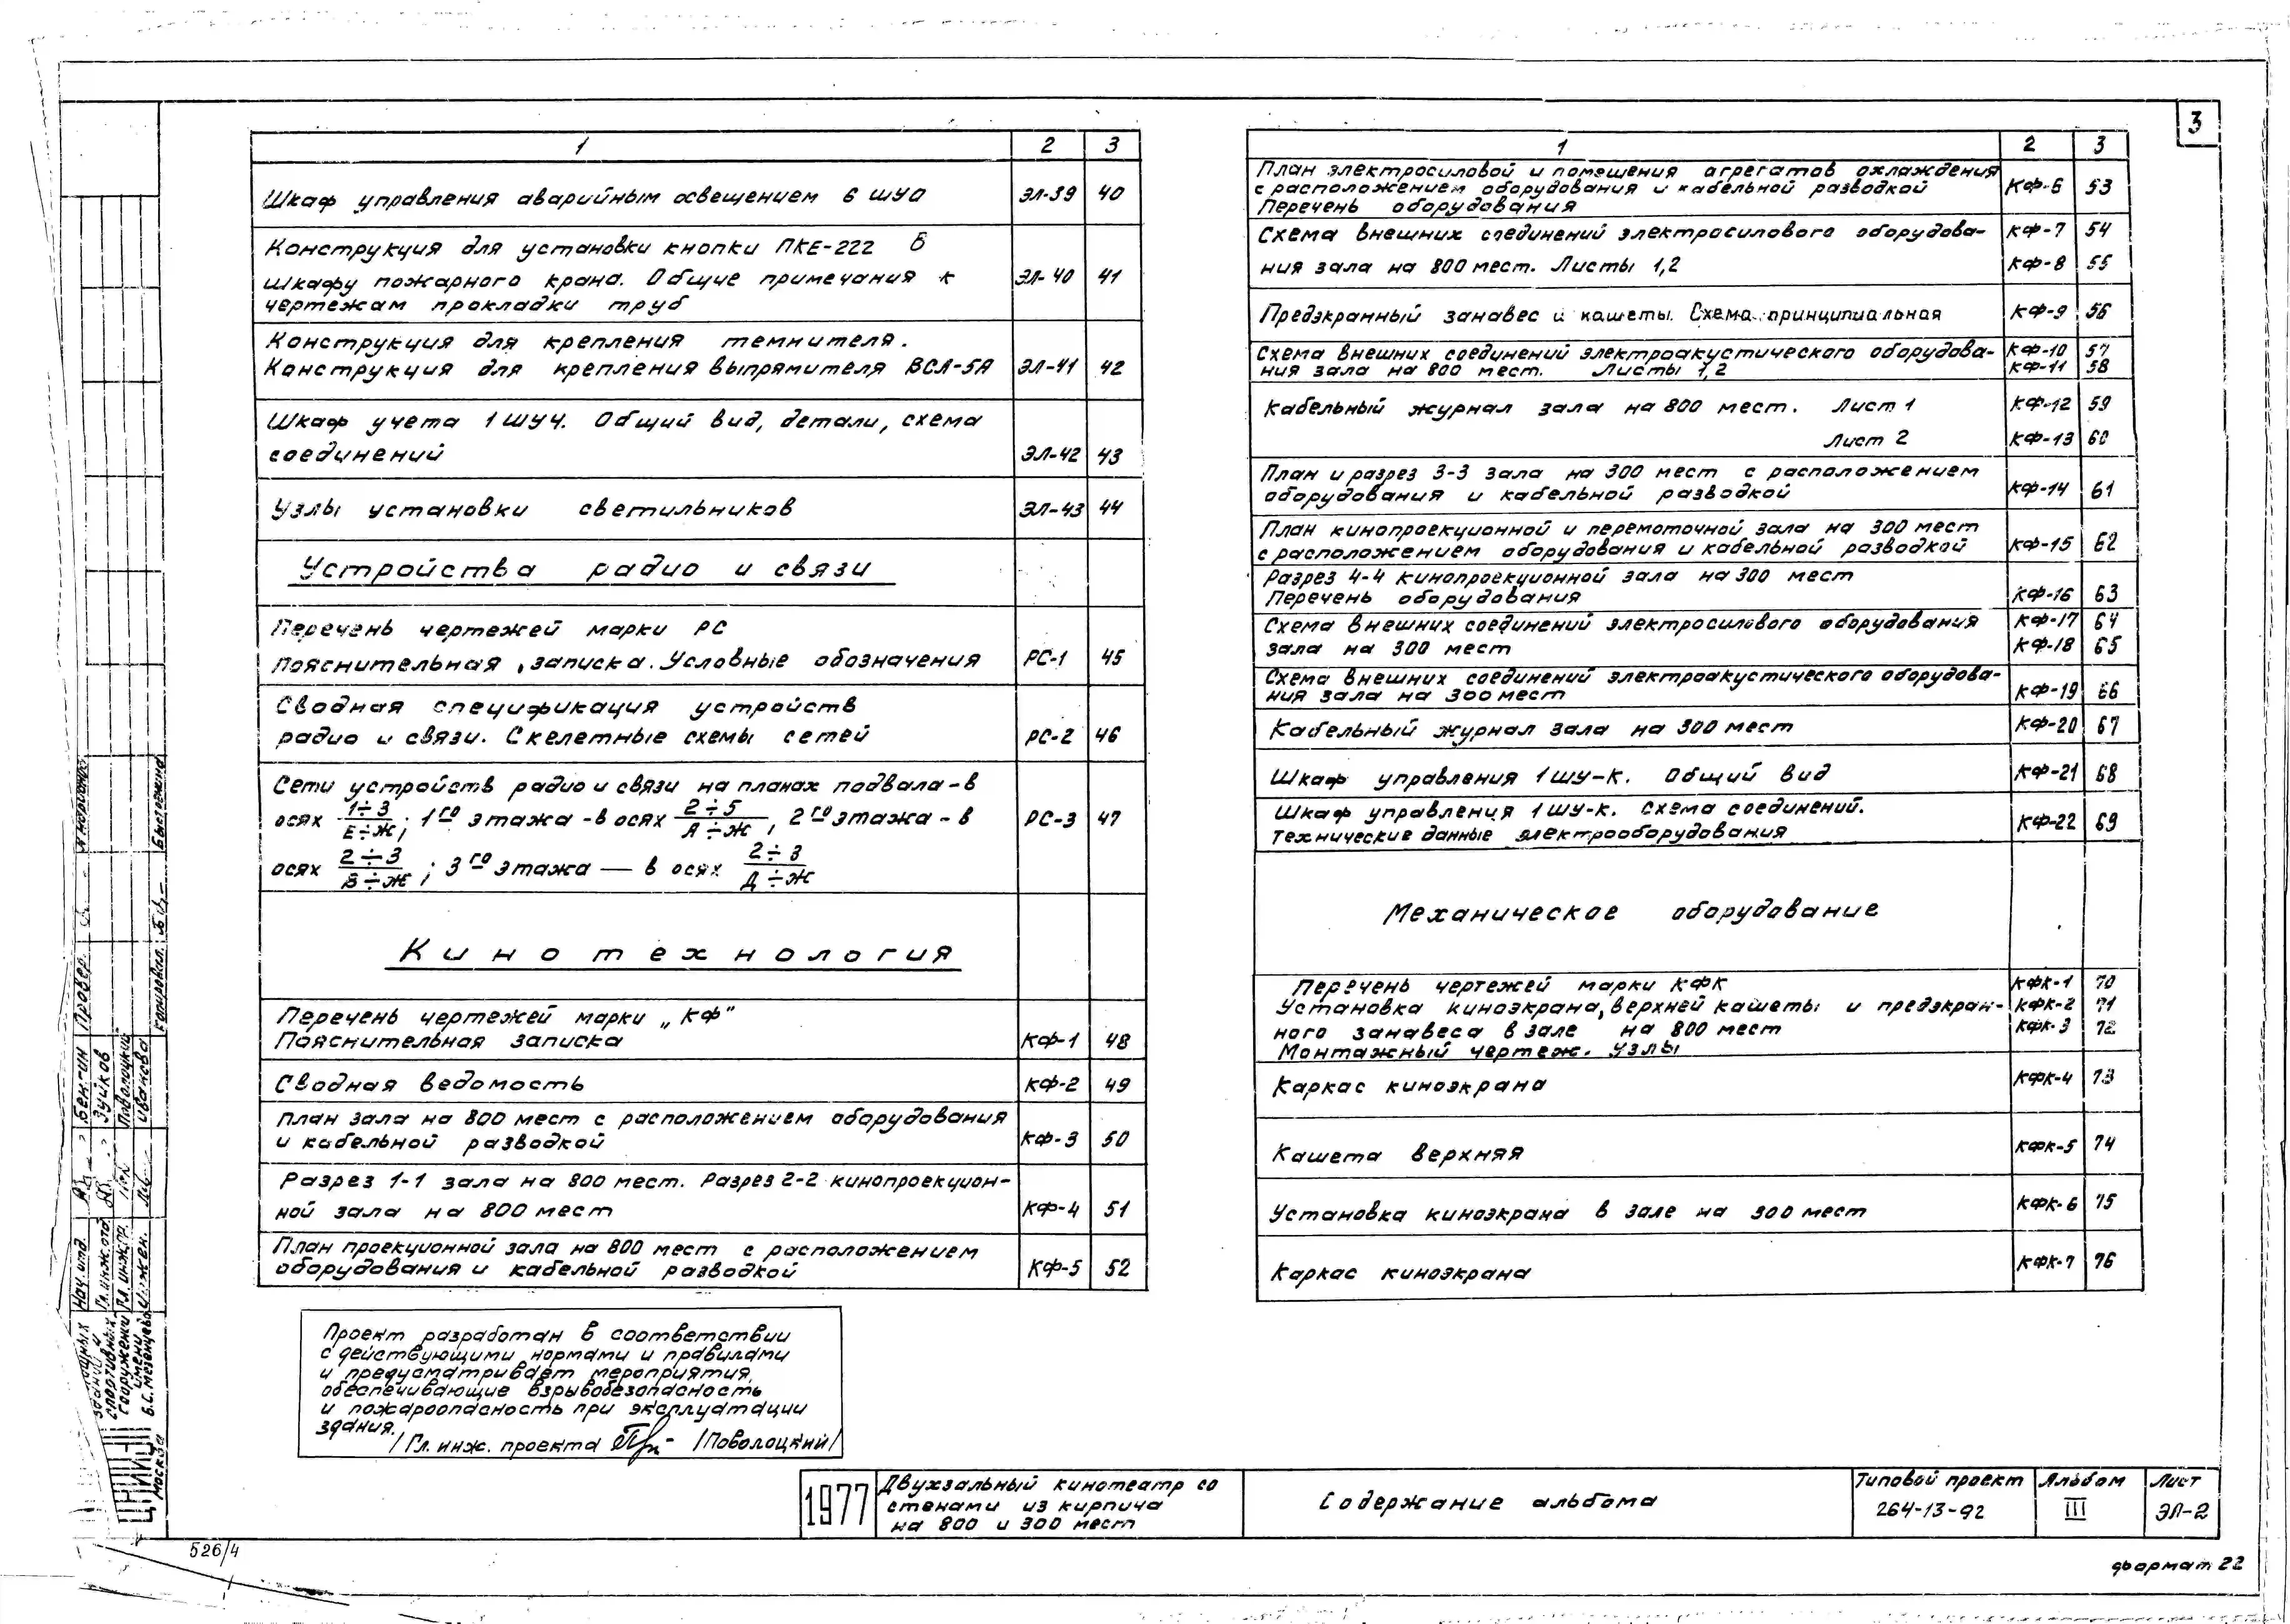 3
1 2 3
Шкаф управления аварийным освещением 6 ШУО ЭЛ-39 40
Конструкция для установки кнопки ПКЕ-222 в
шкафу пожарного крана. Общие примечания к ЭЛ-40 41
чертежам прокладки труб
Конструкция для крепления темнителя.
Конструкция для крепления выпрямителя ВСА-5А ЭЛ-41 42
Шкаф учета 1 ШУЧ. Общий вид, детали, схема
соединений ЭЛ-42 43
Узлы установки светильников ЭЛ-43 44
Устройства радио и связи
Перечень чертежей марки РС
Пояснительная записка. Условные обозначения РС-1 45
Сводная спецификация устройств
радио и связи. Скелетные схемы сетей РС-2 46
Сети устройств радио и связи на планах подвала - в
осях 1÷3/Е÷Ж; 1го этажа - в осях 2÷5/А÷Ж, 2го этажа - в РС-3 47
осях 2÷3/В÷Ж; 3го этажа — в осях 2÷3/Д÷Ж
Кинотехнология
Перечень чертежей марки „КФ"
Пояснительная записка КФ-1 48
Сводная ведомость КФ-2 49
План зала на 800 мест с расположением оборудования
и кабельной разводкой КФ-3 50
Разрез 1-1 зала на 800 мест. Разрез 2-2 кинопроекцион-
ной зала на 800 мест КФ-4 51
План проекционной зала на 800 мест с расположением
оборудования и кабельной разводкой КФ-5 52
1 2 3
План электросиловой и помещения агрегатов охлаждения
с расположением оборудования и кабельной разводкой КФ-6 53
Перечень оборудования
Схема внешних соединений электросилового оборудова- КФ-7 54
ния зала на 800 мест. Листы 1,2 КФ-8 55
Предэкранный занавес и кашеты. Схема принципиальная КФ-9 56
Схема внешних соединений электроакустического оборудова- КФ-10 57
ния зала на 800 мест. Листы 1,2 КФ-11 58
Кабельный журнал зала на 800 мест. Лист 1 КФ-12 59
Лист 2 КФ-13 60
План и разрез 3-3 зала на 300 мест с расположением
оборудования и кабельной разводкой КФ-14 61
План кинопроекционной и перемоточной зала на 300 мест
с расположением оборудования и кабельной разводкой КФ-15 62
Разрез 4-4 кинопроекционной зала на 300 мест
Перечень оборудования КФ-16 63
Схема внешних соединений электросилового оборудования КФ-17 64
зала на 300 мест КФ-18 65
Схема внешних соединений электроакустического оборудова-
ния зала на 300 мест КФ-19 66
Кабельный журнал зала на 300 мест КФ-20 67
Шкаф управления 1 ШУ-К. Общий вид КФ-21 68
Шкаф управления 1 ШУ-К. Схема соединений.
Технические данные электрооборудования КФ-22 69
Механическое оборудование
Перечень чертежей марки КФК КФК-1 70
Установка киноэкрана, верхней кашеты и предэкран- КФК-2 71
ного занавеса в зале на 800 мест КФК-3 72
Монтажный чертеж. Узлы
Каркас киноэкрана КФК-4 73
Кашета верхняя КФК-5 74
Установка киноэкрана в зале на 300 мест КФК-6 75
Каркас киноэкрана КФК-7 76
Проект разработан в соответствии
с действующими нормами и правилами
и предусматривает мероприятия,
обеспечивающие взрывобезопасность
и пожароопасность при эксплуатации
здания.
/Гл. инж. проекта /Поволоцкий/
1977
Двухзальный кинотеатр со
стенами из кирпича
на 800 и 300 мест
Содержание альбома
Типовой проект
264-13-92
Альбом
III
Лист
ЭЛ-2
формат 22
526/4
Провер.
Копировал:
Быстовкина
Нач. отд. Бенгин
Гл. инж. отд. Зуйков
Гл. инж. пр. Поволоцкий
Инжен. Иванова
зданий и
спортивных
сооружений
имени
Б.С. Мезенцева
Москва